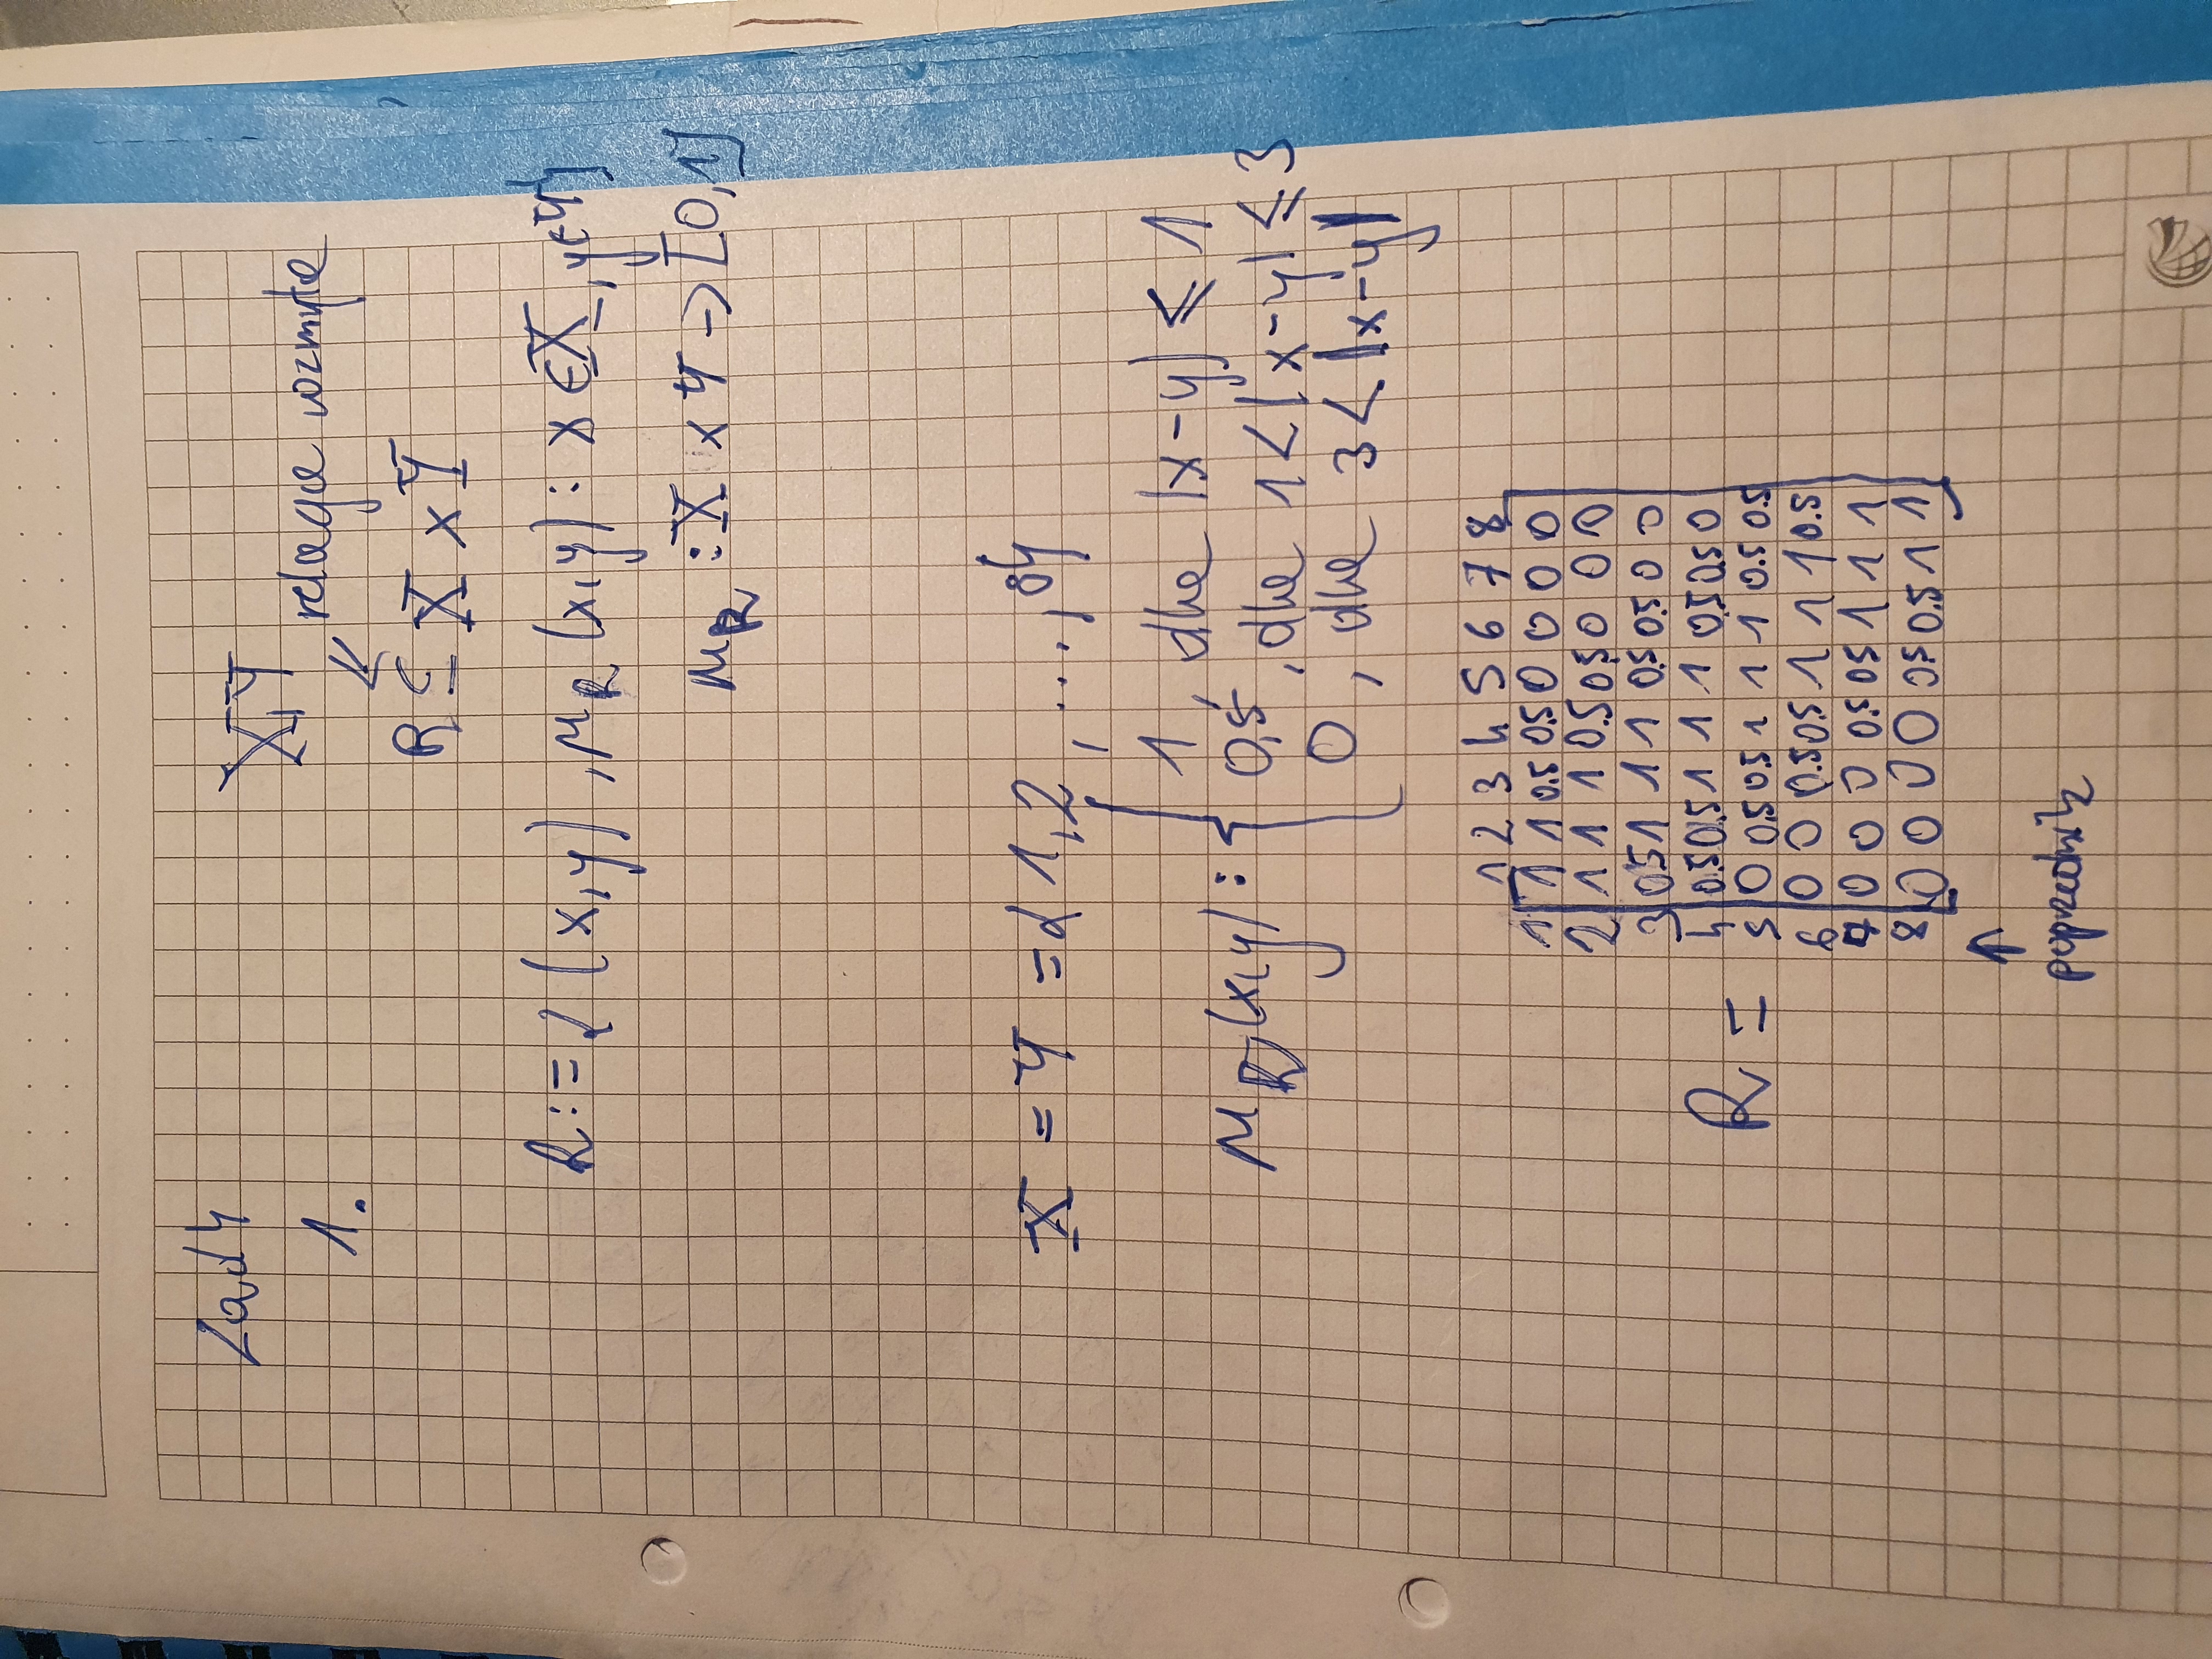 Zad 4
1.
X, Y
relacja rozmyta
R ⊆ X × Y
R := { (x,y), μ_R (x,y) : x ∈ X, y ∈ Y }
μ_R : X × Y → [0,1]
X = Y = { 1,2, ..., 8 }
μ_R (x,y) : {
1, dla |x-y| ≤ 1
0,5, dla 1 < |x-y| ≤ 3
0, dla 3 < |x-y|
1 2 3 4 5 6 7 8
1 1 1 0.5 0.5 0 0 0 0
2 1 1 1 0.5 0.5 0 0 0
3 0.5 1 1 1 0.5 0.5 0 0
4 0.5 0.5 1 1 1 0.5 0.5 0
R =
5 0 0.5 0.5 1 1 1 0.5 0.5
6 0 0 0.5 0.5 1 1 1 0.5
7 0 0 0 0.5 0.5 1 1 1
8 0 0 0 0 0.5 0.5 1 1
↑
poprzednik